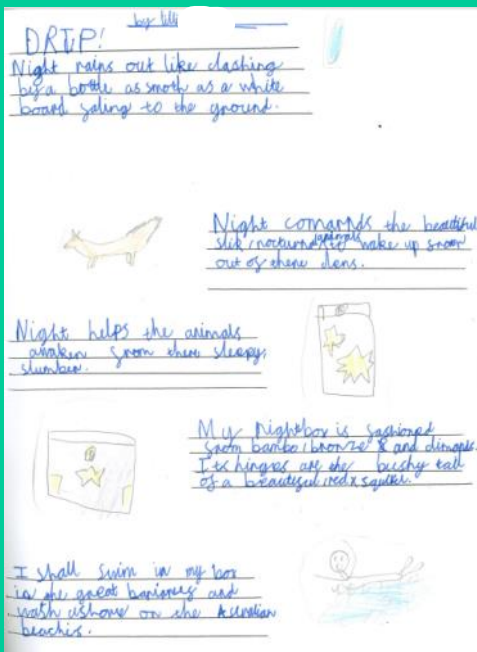 by lilli
DRIP!
Night rains out like clashing
by a bottle as smoth as a white
board faling to the ground.
Night comarnds the beatiful
slik, nocturnal animals to wake up from
out of there dens.
Night helps the animals
awaken from there sleepy,
slumber.
My Nightbox is fashioned
from bambo, bronze & and
Its hinges are the bushy tail
of a beautiful, red squ
I shall swim in my box
in the great and
wash ashore on the
beachis.